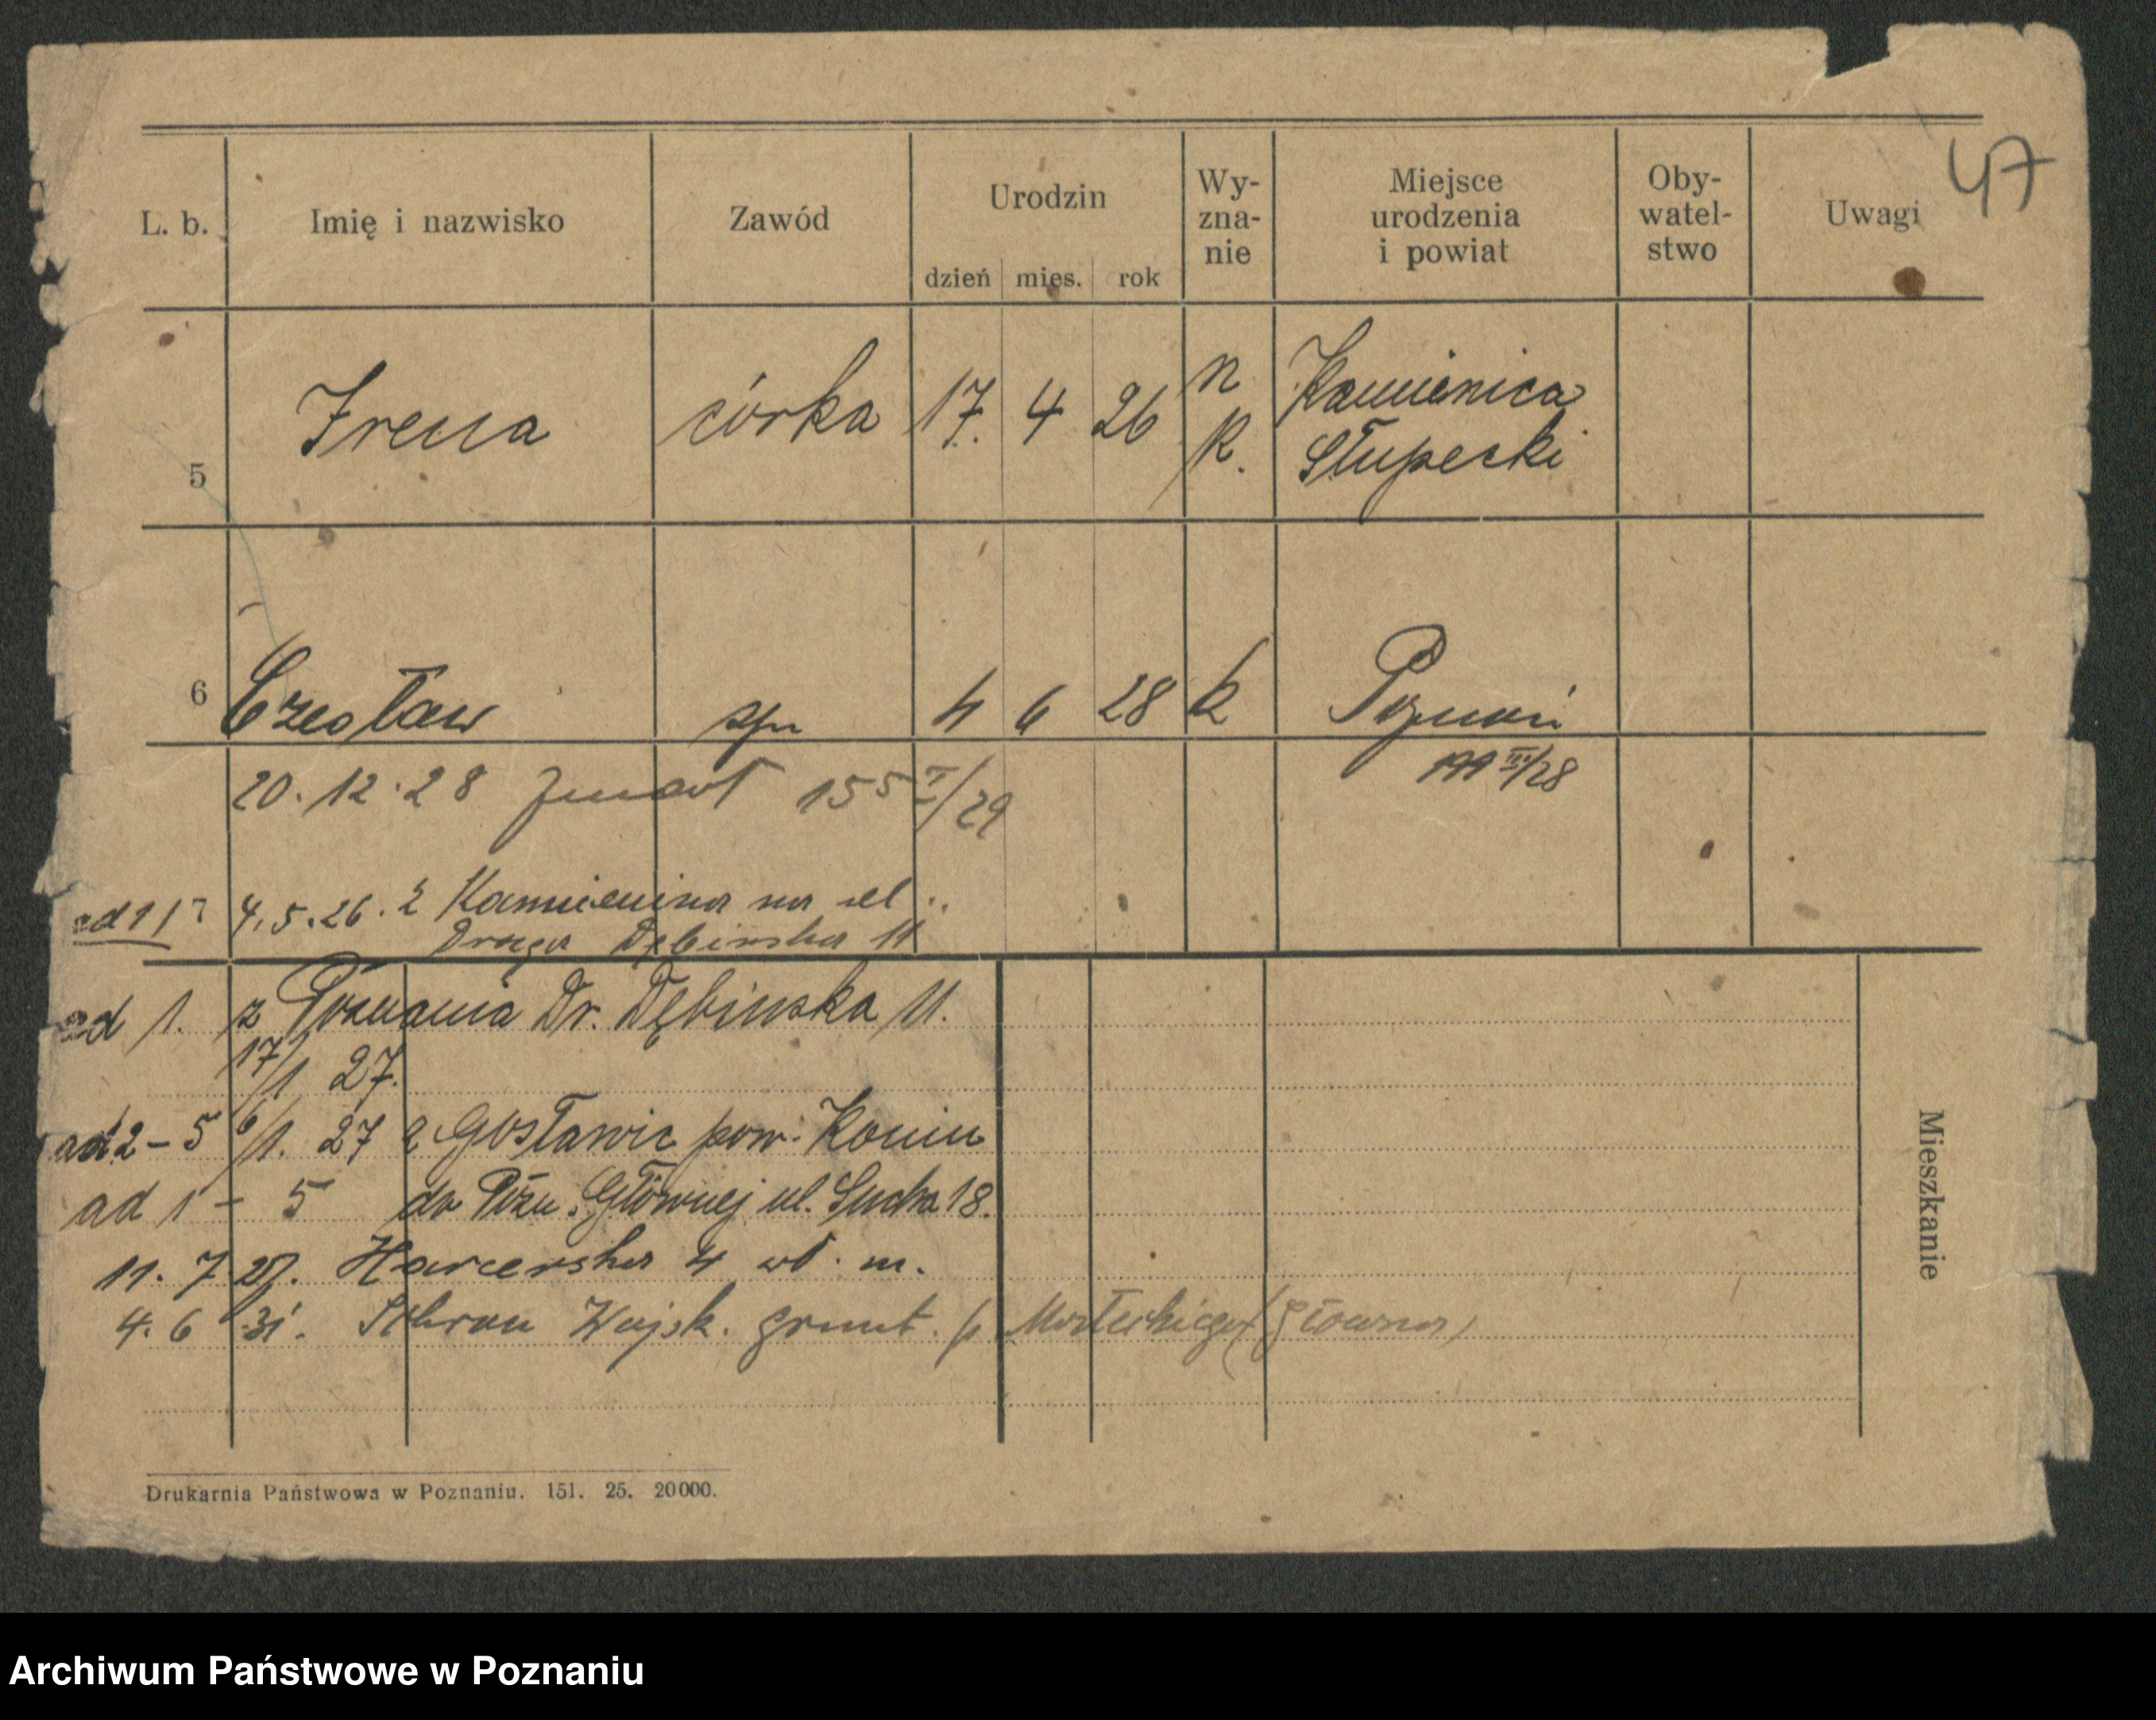 47
L. b. Imię i nazwisko Zawód Urodzin dzień mies. rok Wy-zna-nie Miejsce urodzenia i powiat Oby-watel-stwo Uwagi
5 Irena córka 17. 4 26 r. k. Kamienica
Słupecki
6 Czesław syn 4 6 28 k Poznań
20.12.28 zmarł 155 I/29 III/28
4.5.26. z Kamienica na ul.
Droga Dębinska 11
ad 1. z Poznania Dr. Dębinska 11.
17/1 27.
ad 2-5 6/1. 27 z Gosławic pow. Konin
ad 1 - 5 do Pozn. Głównej ul. Sucha 18.
11. 7. 27. Harcerska 4 wł. m.
4. 6 31. Schron Wojsk. grunt. p. (Główna)
Mieszkanie
Drukarnia Państwowa w Poznaniu. 151. 25. 20000.
Archiwum Państwowe w Poznaniu